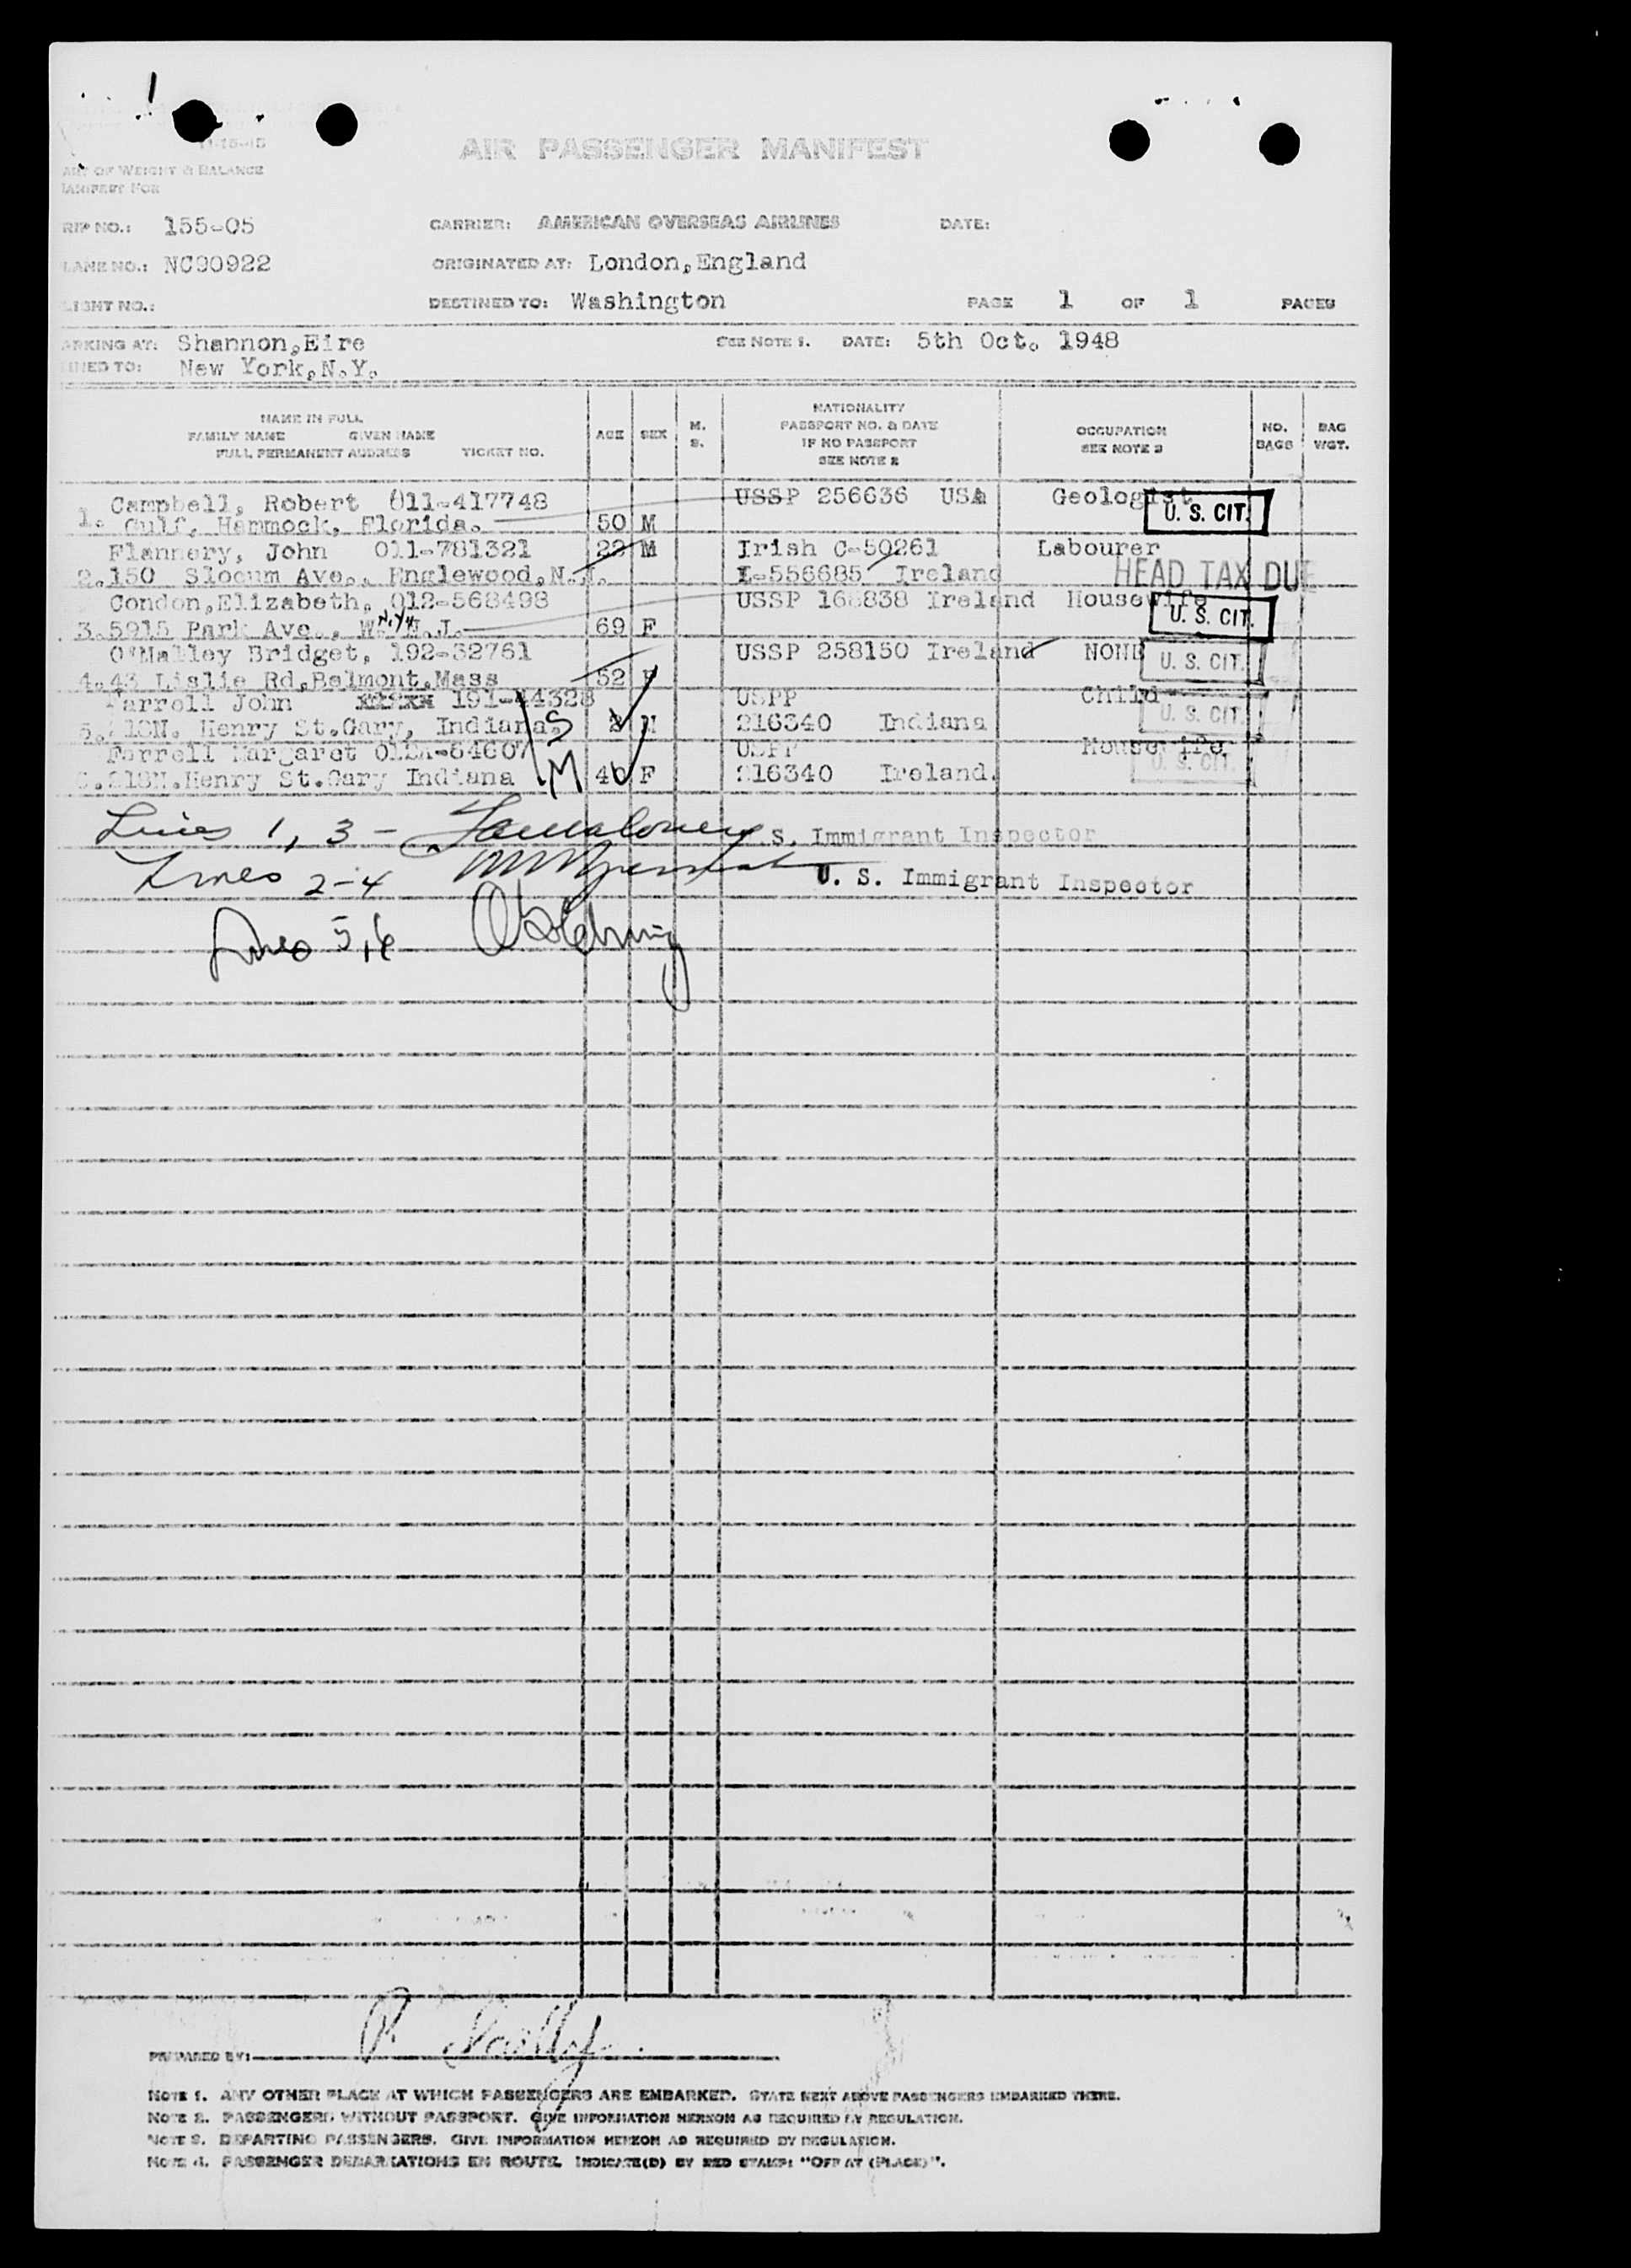 11-15-45
AIR PASSENGER MANIFEST
ART OF WEIGHT & BALANCE
MANIFEST FOR
RIP NO.: 155-05 CARRIER: AMERICAN OVERSEAS AIRLINES DATE:
LANE NO.: NC90922 ORIGINATED AT: London,England
LIGHT NO.: DESTINED TO: Washington PAGE 1 OF 1 PAGES
ARKING AT: Shannon,Eire SEE NOTE 1. DATE: 5th Oct. 1948
INED TO: New York,N.Y.
NAME IN FULL
FAMILY NAME GIVEN NAME
FULL PERMANENT ADDRESS TICKET NO.
AGE SEX M. S.
NATIONALITY
PASSPORT NO. & DATE
IF NO PASSPORT
SEE NOTE 2
OCCUPATION
SEE NOTE 3
NO. BAGS BAG WGT.
Campbell, Robert 011-417748 USSP 256636 USA Geologist
1. Gulf, Hammock, Florida. 50 M U. S. CIT.
Flannery, John 011-781321 22 M Irish C-50261 Labourer
2.150 Slocum Ave., Englewood,N.J. I-556685 Ireland HEAD TAX DUE
Condon,Elizabeth, 012-568498 USSP 166838 Ireland Housewife
3.5915 Park Ave., W. N.Y. N.J. 69 F U. S. CIT.
O'Malley Bridget, 192-32761 USSP 258150 Ireland NONE
4.43 Lislie Rd,Belmont,Mass 52 F U. S. CIT.
Farrell John 191-44328 USPP Child
5.218N. Henry St.Gary, Indiana. S 2 M 216340 Indiana U. S. CIT.
Farrell Margaret USPP Housewife,
6.218N.Henry St.Gary Indiana M 40 F 216340 Ireland. U. S. CIT.
Lines 1, 3 - S. Immigrant Inspector
Lines 2-4 U. S. Immigrant Inspector
Lines 5,6
PREPARED BY: P.
NOTE 1. ANY OTHER PLACE AT WHICH PASSENGERS ARE EMBARKED. STATE NEXT ABOVE PASSENGERS EMBARKED THERE.
NOTE 2. PASSENGERS WITHOUT PASSPORT. GIVE INFORMATION HEREON AS REQUIRED BY REGULATION.
NOTE 3. DEPARTING PASSENGERS. GIVE INFORMATION HEREON AS REQUIRED BY REGULATION.
NOTE 4. PASSENGER DEBARKATIONS EN ROUTE. INDICATE(D) BY RED STAMP: "OFF AT (PLACE)".